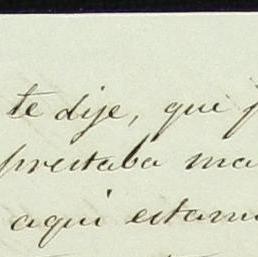 te dije, que
prestaba ma
aqui estam